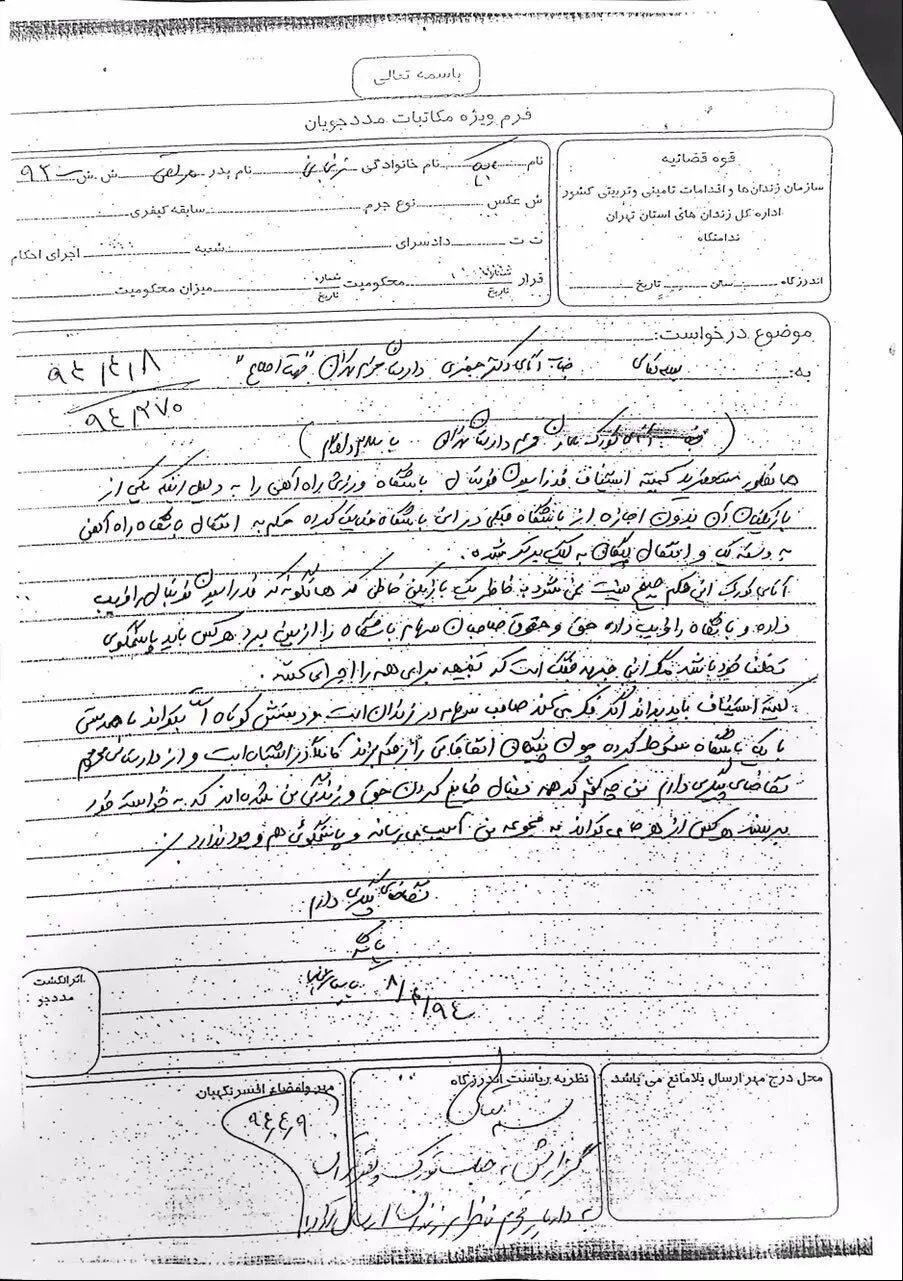 باسمه تعالی
فرم ویژه مکاتبات مددجویان
قوه قضائیه
سازمان زندان‌ها و اقدامات تامینی و تربیتی کشور
اداره کل زندان های استان تهران
ندامتگاه
اندرزگاه سالن تاریخ
نام بابک نام خانوادگی زنجانی نام پدر ش ش ۹۲۰
ش عکس نوع جرم سابقه کیفری
ت ت دادسرای شعبه اجرای احکام
قرار شماره تاریخ محکومیت شماره تاریخ میزان محکومیت
موضوع درخواست:
به: جناب آقای دکتر جعفری دادستان محترم تهران "جهت اطلاع"
۹۴/۴/۸
۹۴/۲۷۰
دادستان تهران با سلام و احترام)
همانطور مستحضرید کمیته استیناف فدراسیون فوتبال باشگاه ورزشی راه آهن را به دلیل اینکه یکی از
بازیکنان آن بدون اجازه از باشگاه قبلی در این باشگاه کرده حکم به انتقال باشگاه راه آهن
به دسته یک و انتقال پیکان به لیگ برتر شده.
آقای تورک این حکم صحیح نیست نمی شود به خاطر یک بازیکن خاطی که همانگونه که فدراسیون فوتبال را فریب
داده و باشگاه را فریب داده حق و حقوق صاحبان سهام باشگاه را از بین برد هر کس باید پاسخگوی
تخلف خود باشد مگر این است که تنبیه برای همه را اجرای کنند.
کمیته استیناف باید بداند اگر فکر می کند صاحب سهام در زندان است و دستش کوتاه است بتواند با همدستی
با یک باشگاه سقوط کرده چون پیکان را رقم بزند کاملاً در اشتباه است و از دادستانی محترم
تقاضای پیگیری دارم من چه کنم که همه دنبال ضایع کردن حق و زندگی من شده‌اند که به خواسته خود
برسند هر کس از هر جا می تواند به مجموعه من آسیب می رساند و پاسخگوئی هم وجود ندارد.
تقاضای پیگیری دارم
با تشکر
۹۴/۴/۸
اثر انگشت
مددجو
محل درج مهر ارسال بلامانع می باشد
نظریه ریاست اندرزگاه
گزارش به جناب تورک
دادیار محترم ناظر بر زندان ارسال گردد
مهر و امضاء افسر نگهبان
۹۴/۴/۹